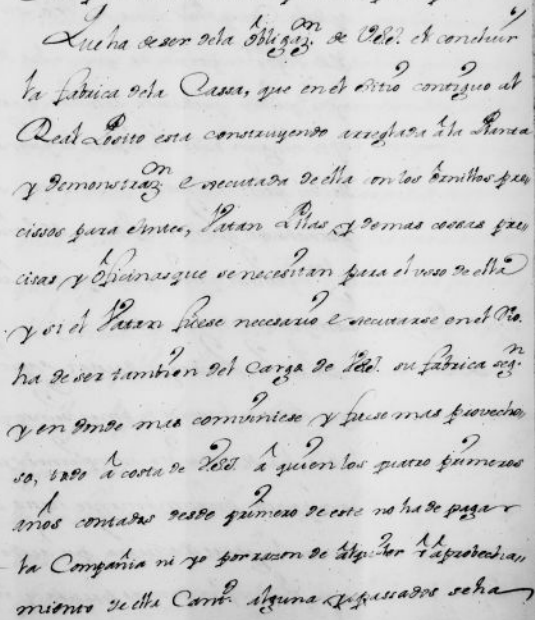 Que ha de ser dela obligaz.on de V.SS.a el concluir
la fabrica dela Cassa, que en el sitio contiguo al
Real Posito esta construyendo arreglada â la Planta
y demonstraz.on executada de ella con los ornillos pre-
cissos para tintes, Vatan Pilas y demas cossas pre-
cisas y oficinas que se necesitan para el uso de ella
y si el Vatan fuese necesario executarse en el Rio
ha de ser tambien del cargo de V.SS.a su fabrica seg.n
y en donde mas combiniese y fuese mas provecho-
so, todo â costa de V.SS.a â quien los quatro primeros
años contados desde primero de este no ha de pagar
la Compañia ni yo por razon de alquiler ô aprobecha-
miento de ella Cant.d alguna y passados se ha